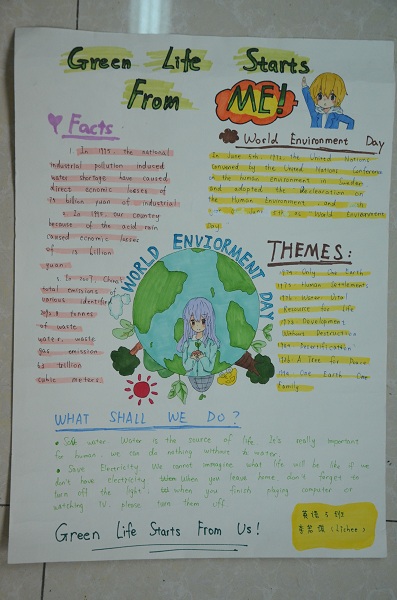 Green Life Starts
From ME!
Facts
1. In 1995 the national
industrial pollution induced
water shortage have caused
direct economic losses of
billion yuan of industrial
2. In 1995 our country
because of the acid rain
caused economic losses
of 15 billion
yuan
3. In 2007, China's
total emissions of
various identified
tonnes
of waste
water, waste
gas emission
trillion
cubic meters
World Environment Day
In June 5th 1972, the United Nations
convened by the United Nations Conference
on the Human Environment in Sweden
and adopted the declaration on
the Human Environment, and
June 5th as World Environment
Day
WORLD ENVIORMENT DAY
THEMES:
1974 Only One Earth
Human Settlements
1976 Water Vital
Resource for Life
Development
Without Destruction
1984 Desertification
A Tree for Peace
One Earth One
Family
WHAT SHALL WE DO?
water Water is the source of life. It's really important
for human. we can do nothing without water.
Save Electricity We cannot imagine what life will be like if we
don't have electricity. When you leave home don't forget to
turn off the light. when you finish playing computer or
watching TV. please turn them off.
Green Life Starts From Us!
英语5班